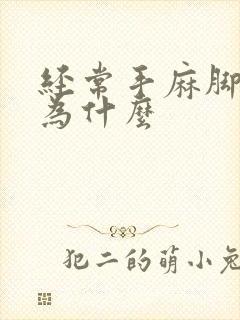 经常手麻脚
為什麼
犯二的萌小兔